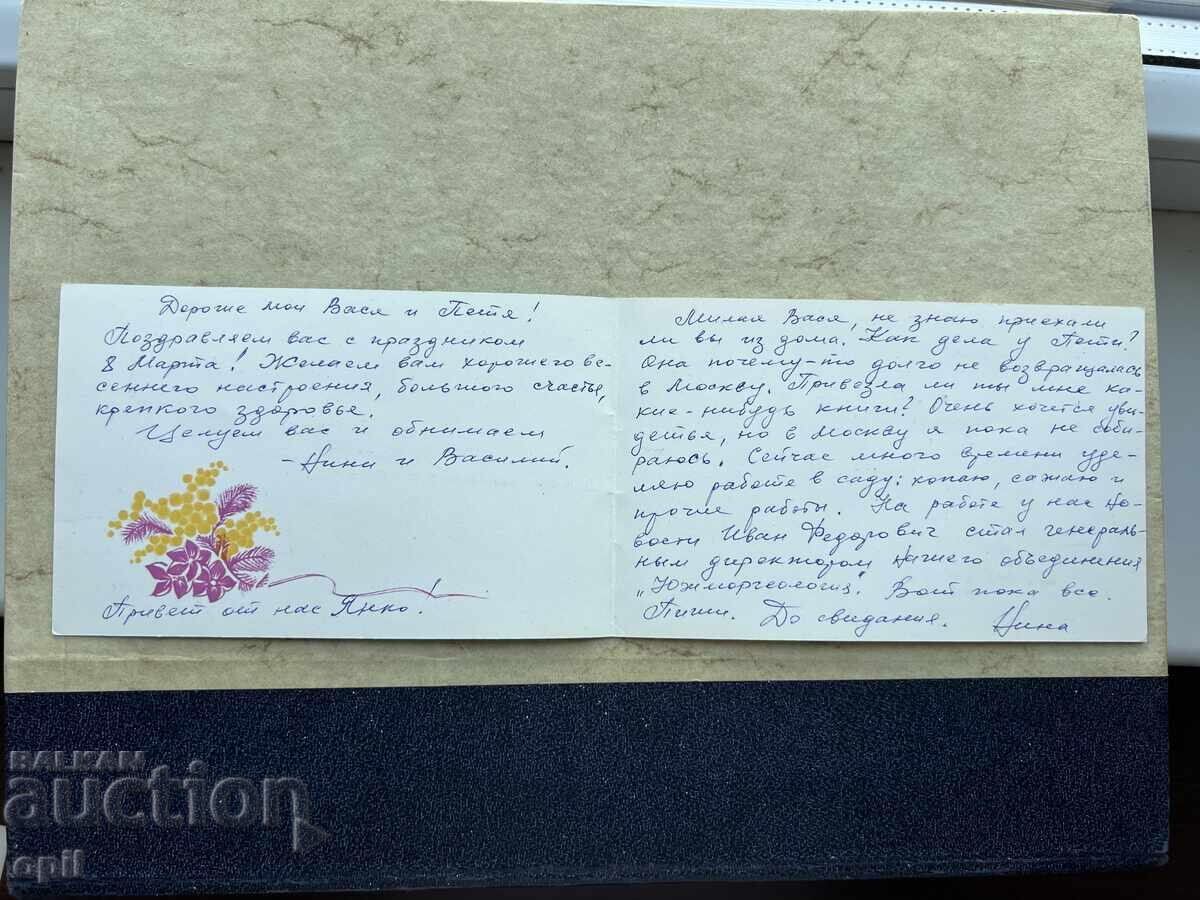 Дорогие мои Вася и Петя!
Поздравляем вас с праздником
8 Марта! Желаем вам хорошего ве-
сеннего настроения, большого счастья,
крепкого здоровье.
Целуем вас и обнимаем
- Нина и Василий.
Привет от нас Янко.
Милая Вася, не знаю приехали
ли вы из дома. Как дела у Пети?
Она почему-то долго не возвращалась
в Москву. Привезла ли ты мне ка-
кие-нибудь книги? Очень хочется уви-
деться, но в Москву я пока не соби-
раюсь. Сейчас много времени уде-
ляю работе в саду: копаю, сажаю и
прочие работы. На работе у нас но-
вости Иван Федорович стал генераль-
ным директором нашего объединения
"Южморгеология". Вот пока все.
Пиши. До свидания. Нина
BALKAN
auction
opil